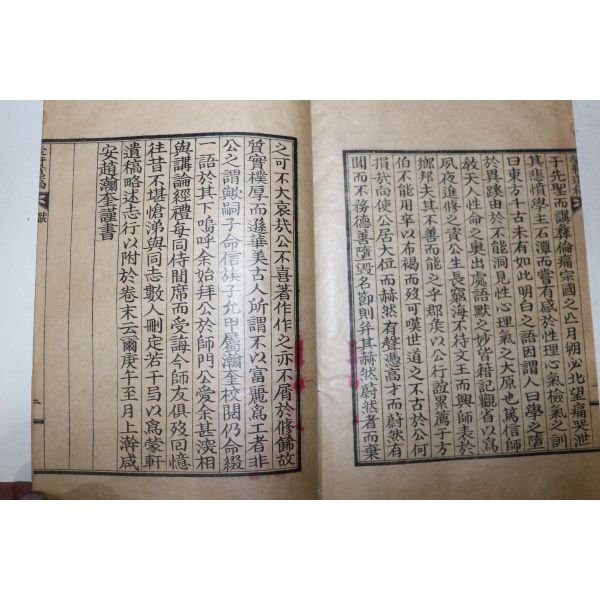 于先聖而講彛倫痛宗國之四月朔必北望痛哭泄
其悲憤學主石潭而嘗有感於性理心氣檢氣之訓
曰東方千古未有如此明白之語因謂人曰學之墮
於異蹊由於不能洞見性心理氣之大原也篤信師
教天人性命之奧出處語默之妙皆籍記觀省以爲
夙夜進修之資公生長窮海不待文王而興師表於
鄉邦夫其不善而能之乎郡侯以公行誼累薦于方
伯不能用卒以布褐而歿可嘆世道之不古於公何
捐㢤向使公居大位而赫然有聲憑高才而蔚然有
聞而不務德善墮毀名節則并其赫然蔚然者而棄
之可不大哀㢤公不喜著作作之亦不屑於修餙故
質實樸厚而遜華美古人所謂不以富麗爲工者非
公之謂歟嗣子命信族子允甲屬瀚奎校閱仍命綴
一語於其下嗚呼余始拜公於師門公愛余甚深相
與講論經禮每同侍間席而受誨今師友俱歿回憶
往昔不堪愴涕與同志數人刪定若干彐以爲蒙軒
遺稿略述志行以附於卷末云爾庚午至月上澣咸
安趙瀚奎謹書